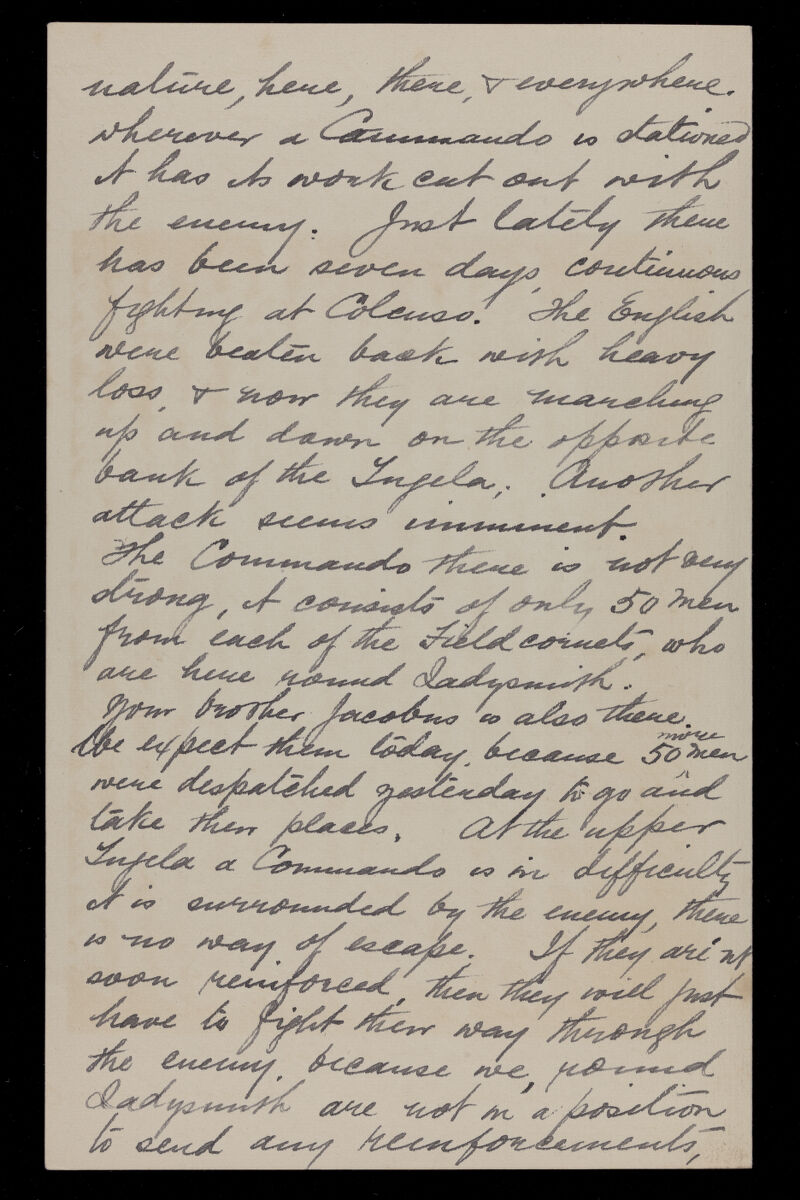 nature, here, there, & everywhere.
wherever a Commando is stationed
it has its work cut out with
the enemy. Just lately there
has been seven days, continuous
fighting at Colenso. The English
were beaten back with heavy
loss, & now they are marching
up and down on the opposite
bank of the Tugela,. Another
attack seems imminent.
The Commando there is not very
strong, it consists of only 50 men
from each of the Fieldcornets, who
are here round Ladysmith.
Your brother Jacobus is also there.
We expect them today, because 50 more men
were despatched yesterday to go and
take their places. At the upper
Tugela a Commando is in difficulty
it is surrounded by the enemy, there
is no way of escape. If they are nt
soon reinforced, then they will just
have to fight their way through
the enemy, because we, round
Ladysmith are not in a position
to send any reinforcements,